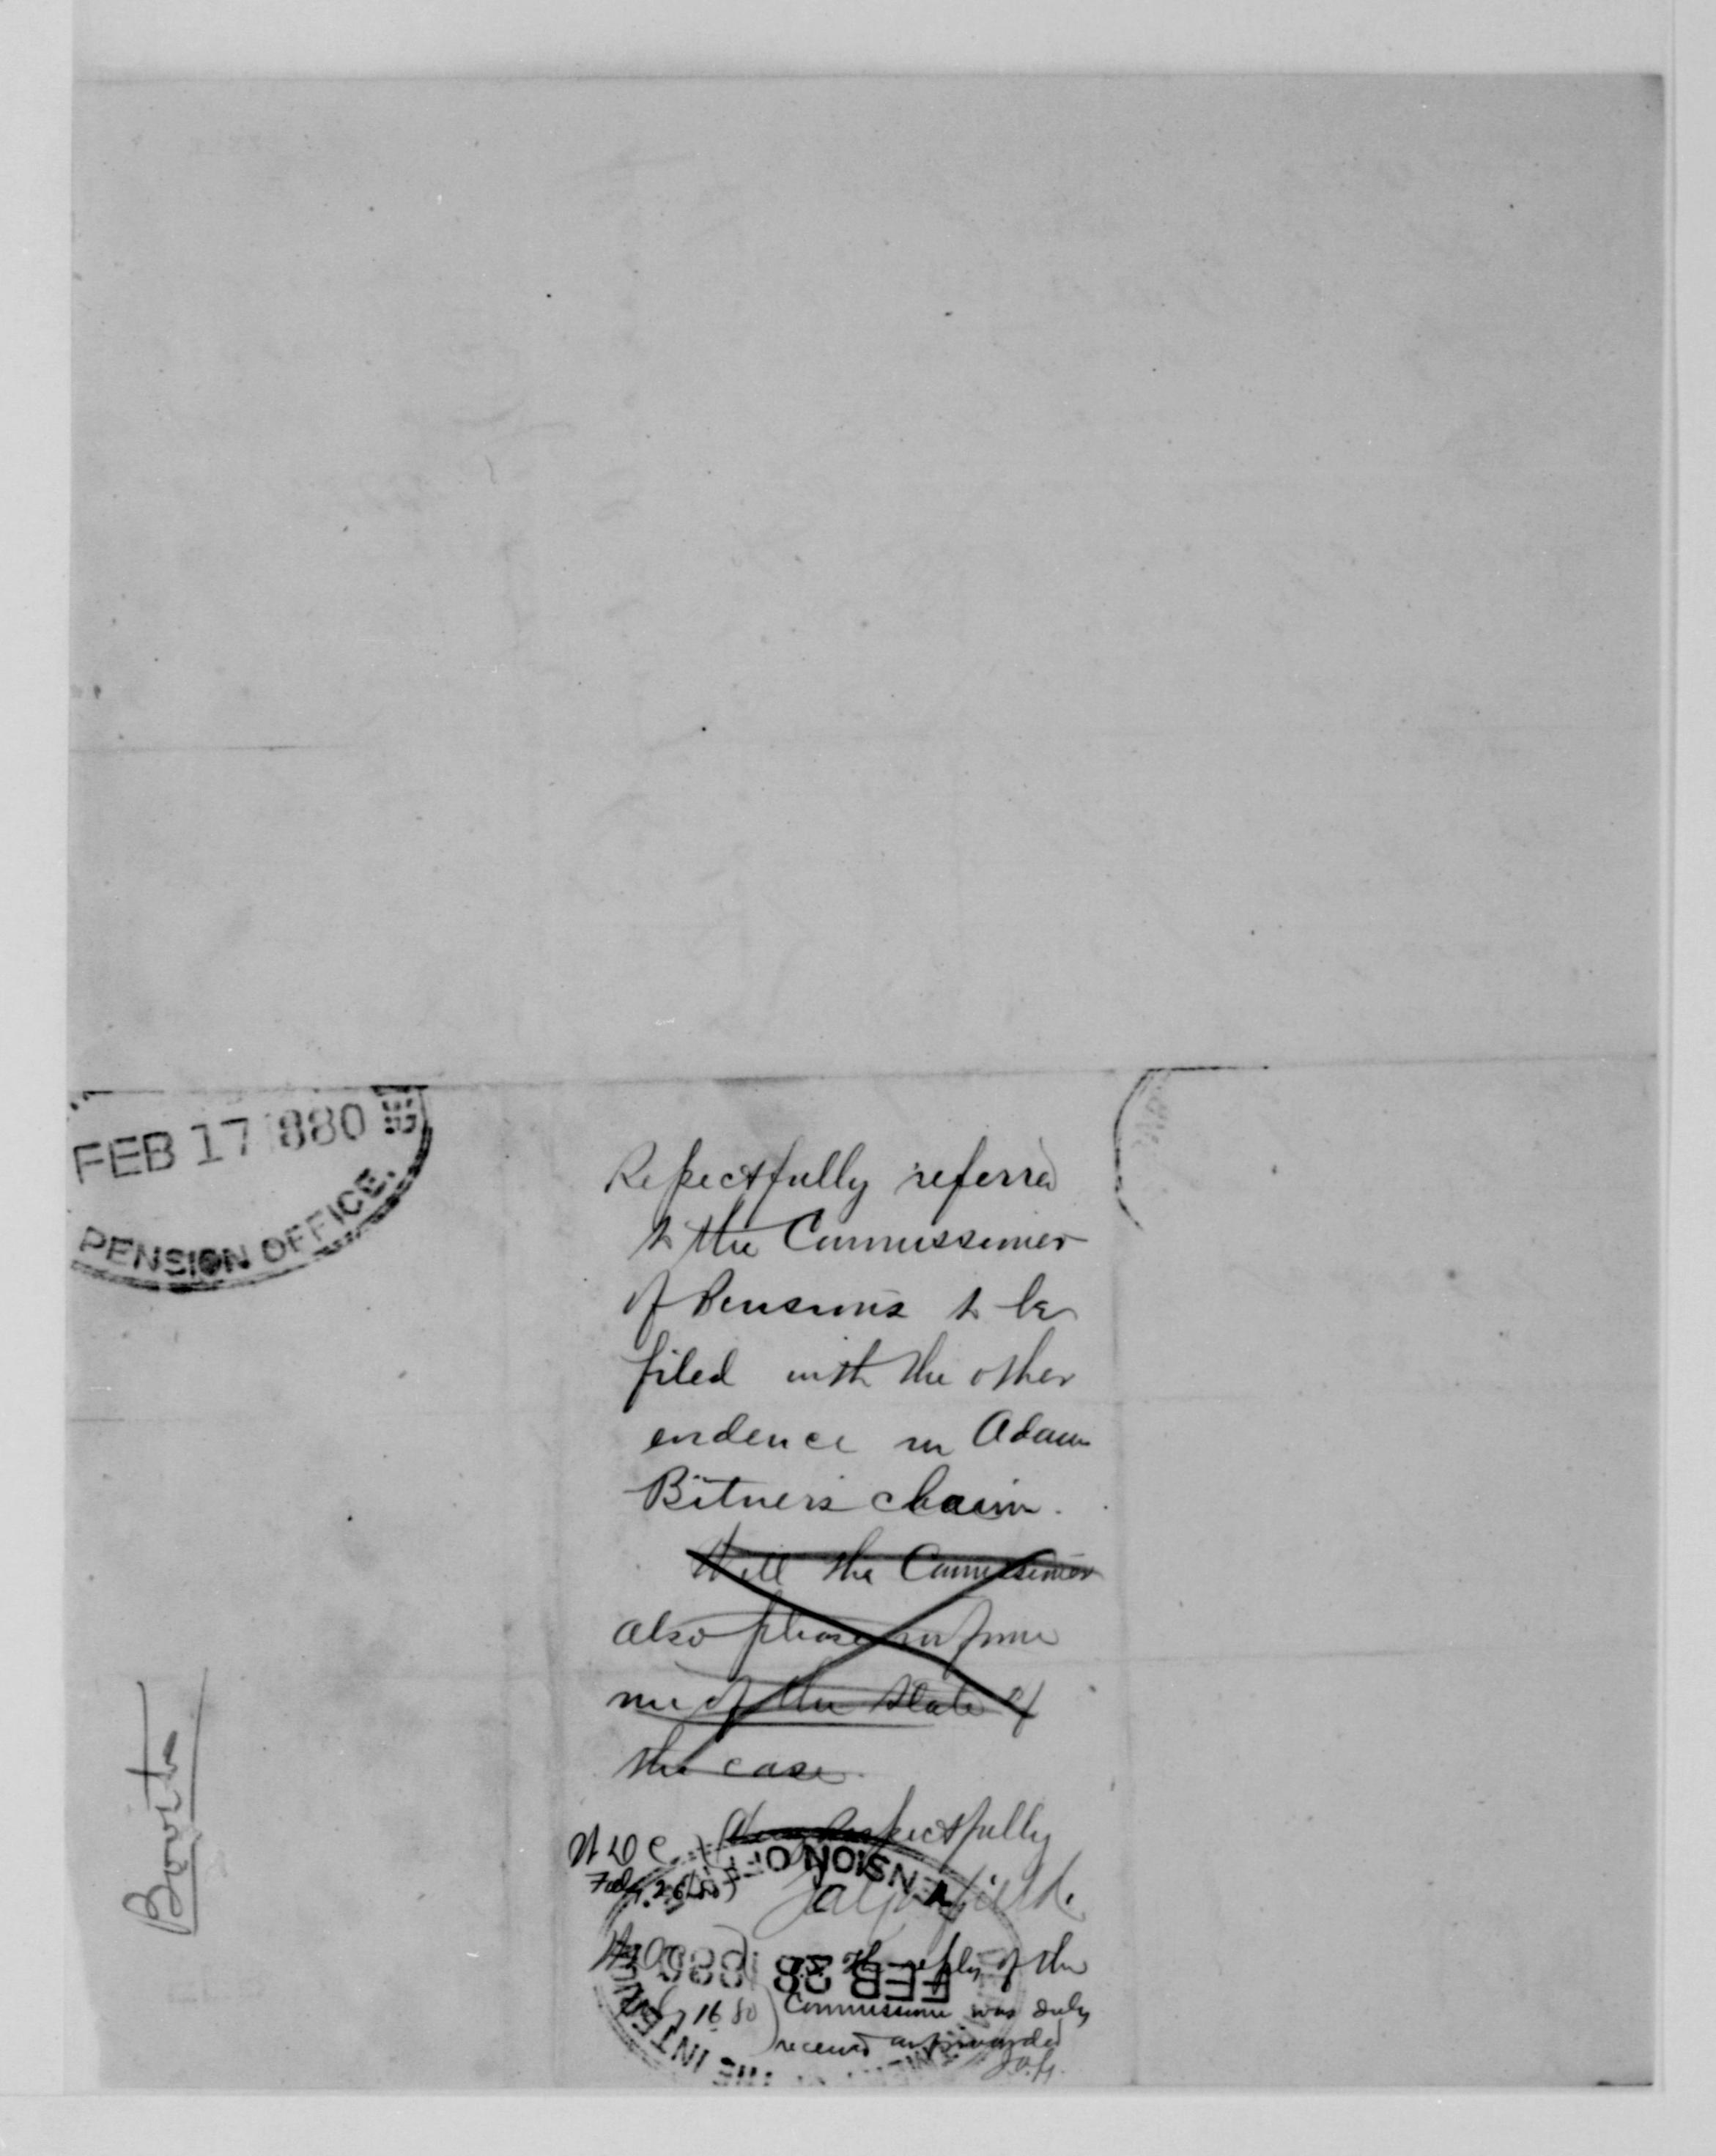 FEB 17 1880
PENSION OFFICE.
Respectfully referred
to the Commissioner
of Pensions to be
filed with the other
evidence in Adam
Bitners claim.
Will the Commissioner
also please inform
me of the State of
the case.
Very Respectfully
J A Garfield.
H R D C
Feby 26/80
PENSION OF
FEB 28 1880
THE INTERIOR
The reply of the
16 80
Commissioner was duly
received and forwarded
J.A.G.